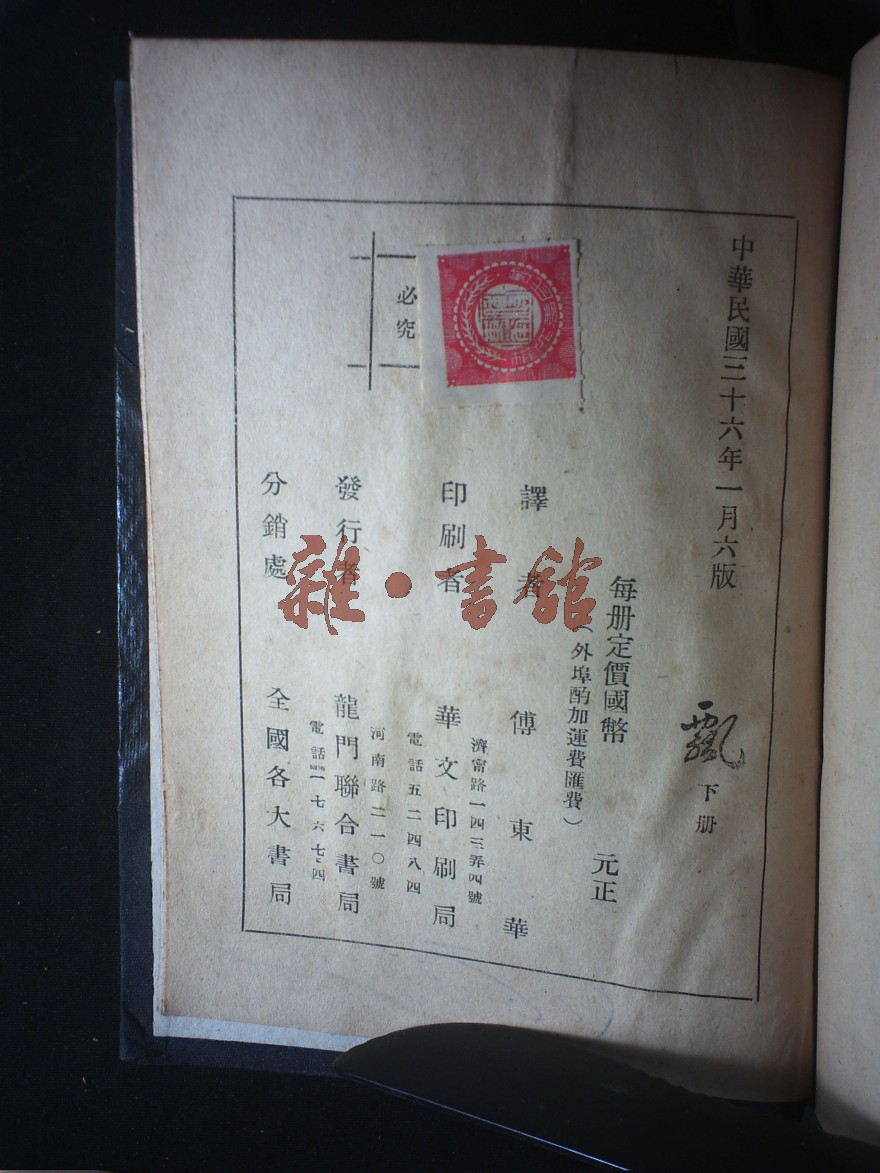 中華民國三十六年一月六版
飄 下册
每册定價國幣 元正
（外埠酌加運費匯費）
譯者 傅東華
濟甯路一四三弄四號
印刷者 華文印刷局
電話五二四八四
河南路二一〇號
發行者 龍門聯合書局
電話一七六七四
分銷處 全國各大書局
必究
雜·書館